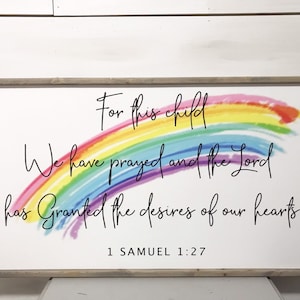 For this child
We have prayed and the Lord
has Granted the desires of our hearts
1 SAMUEL 1:27